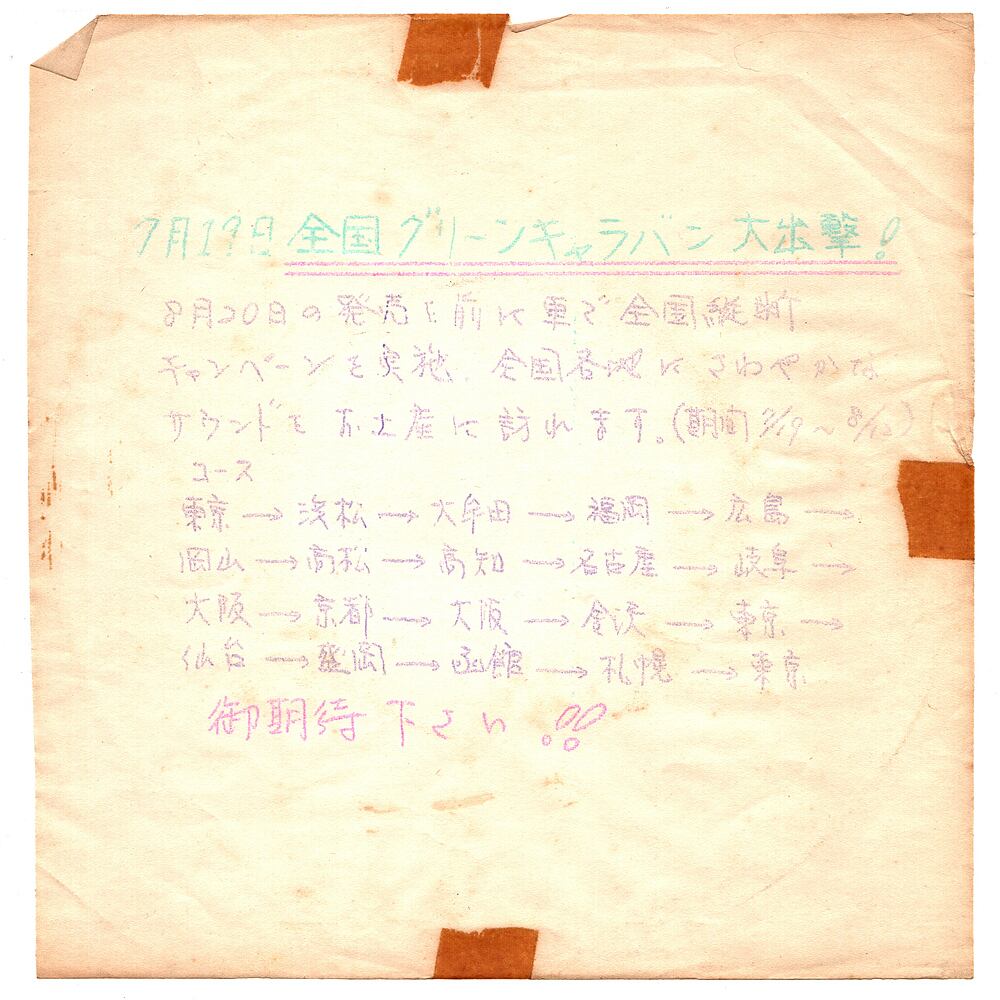 7月19日 全国グリーンキャラバン 大出撃!
8月20日の発売を前に車で全国縦断
キャンペーンを実施、全国各地にさわやかな
サウンドをお土産に訪れます。(期間 7/19〜8/12)
コース
東京→浅松→大牟田→福岡→広島→
岡山→高松→高知→名古産→岐阜→
大阪→京都→大阪→金沢→東京→
仙台→盛岡→函館→札幌→東京
御期待下さい!!